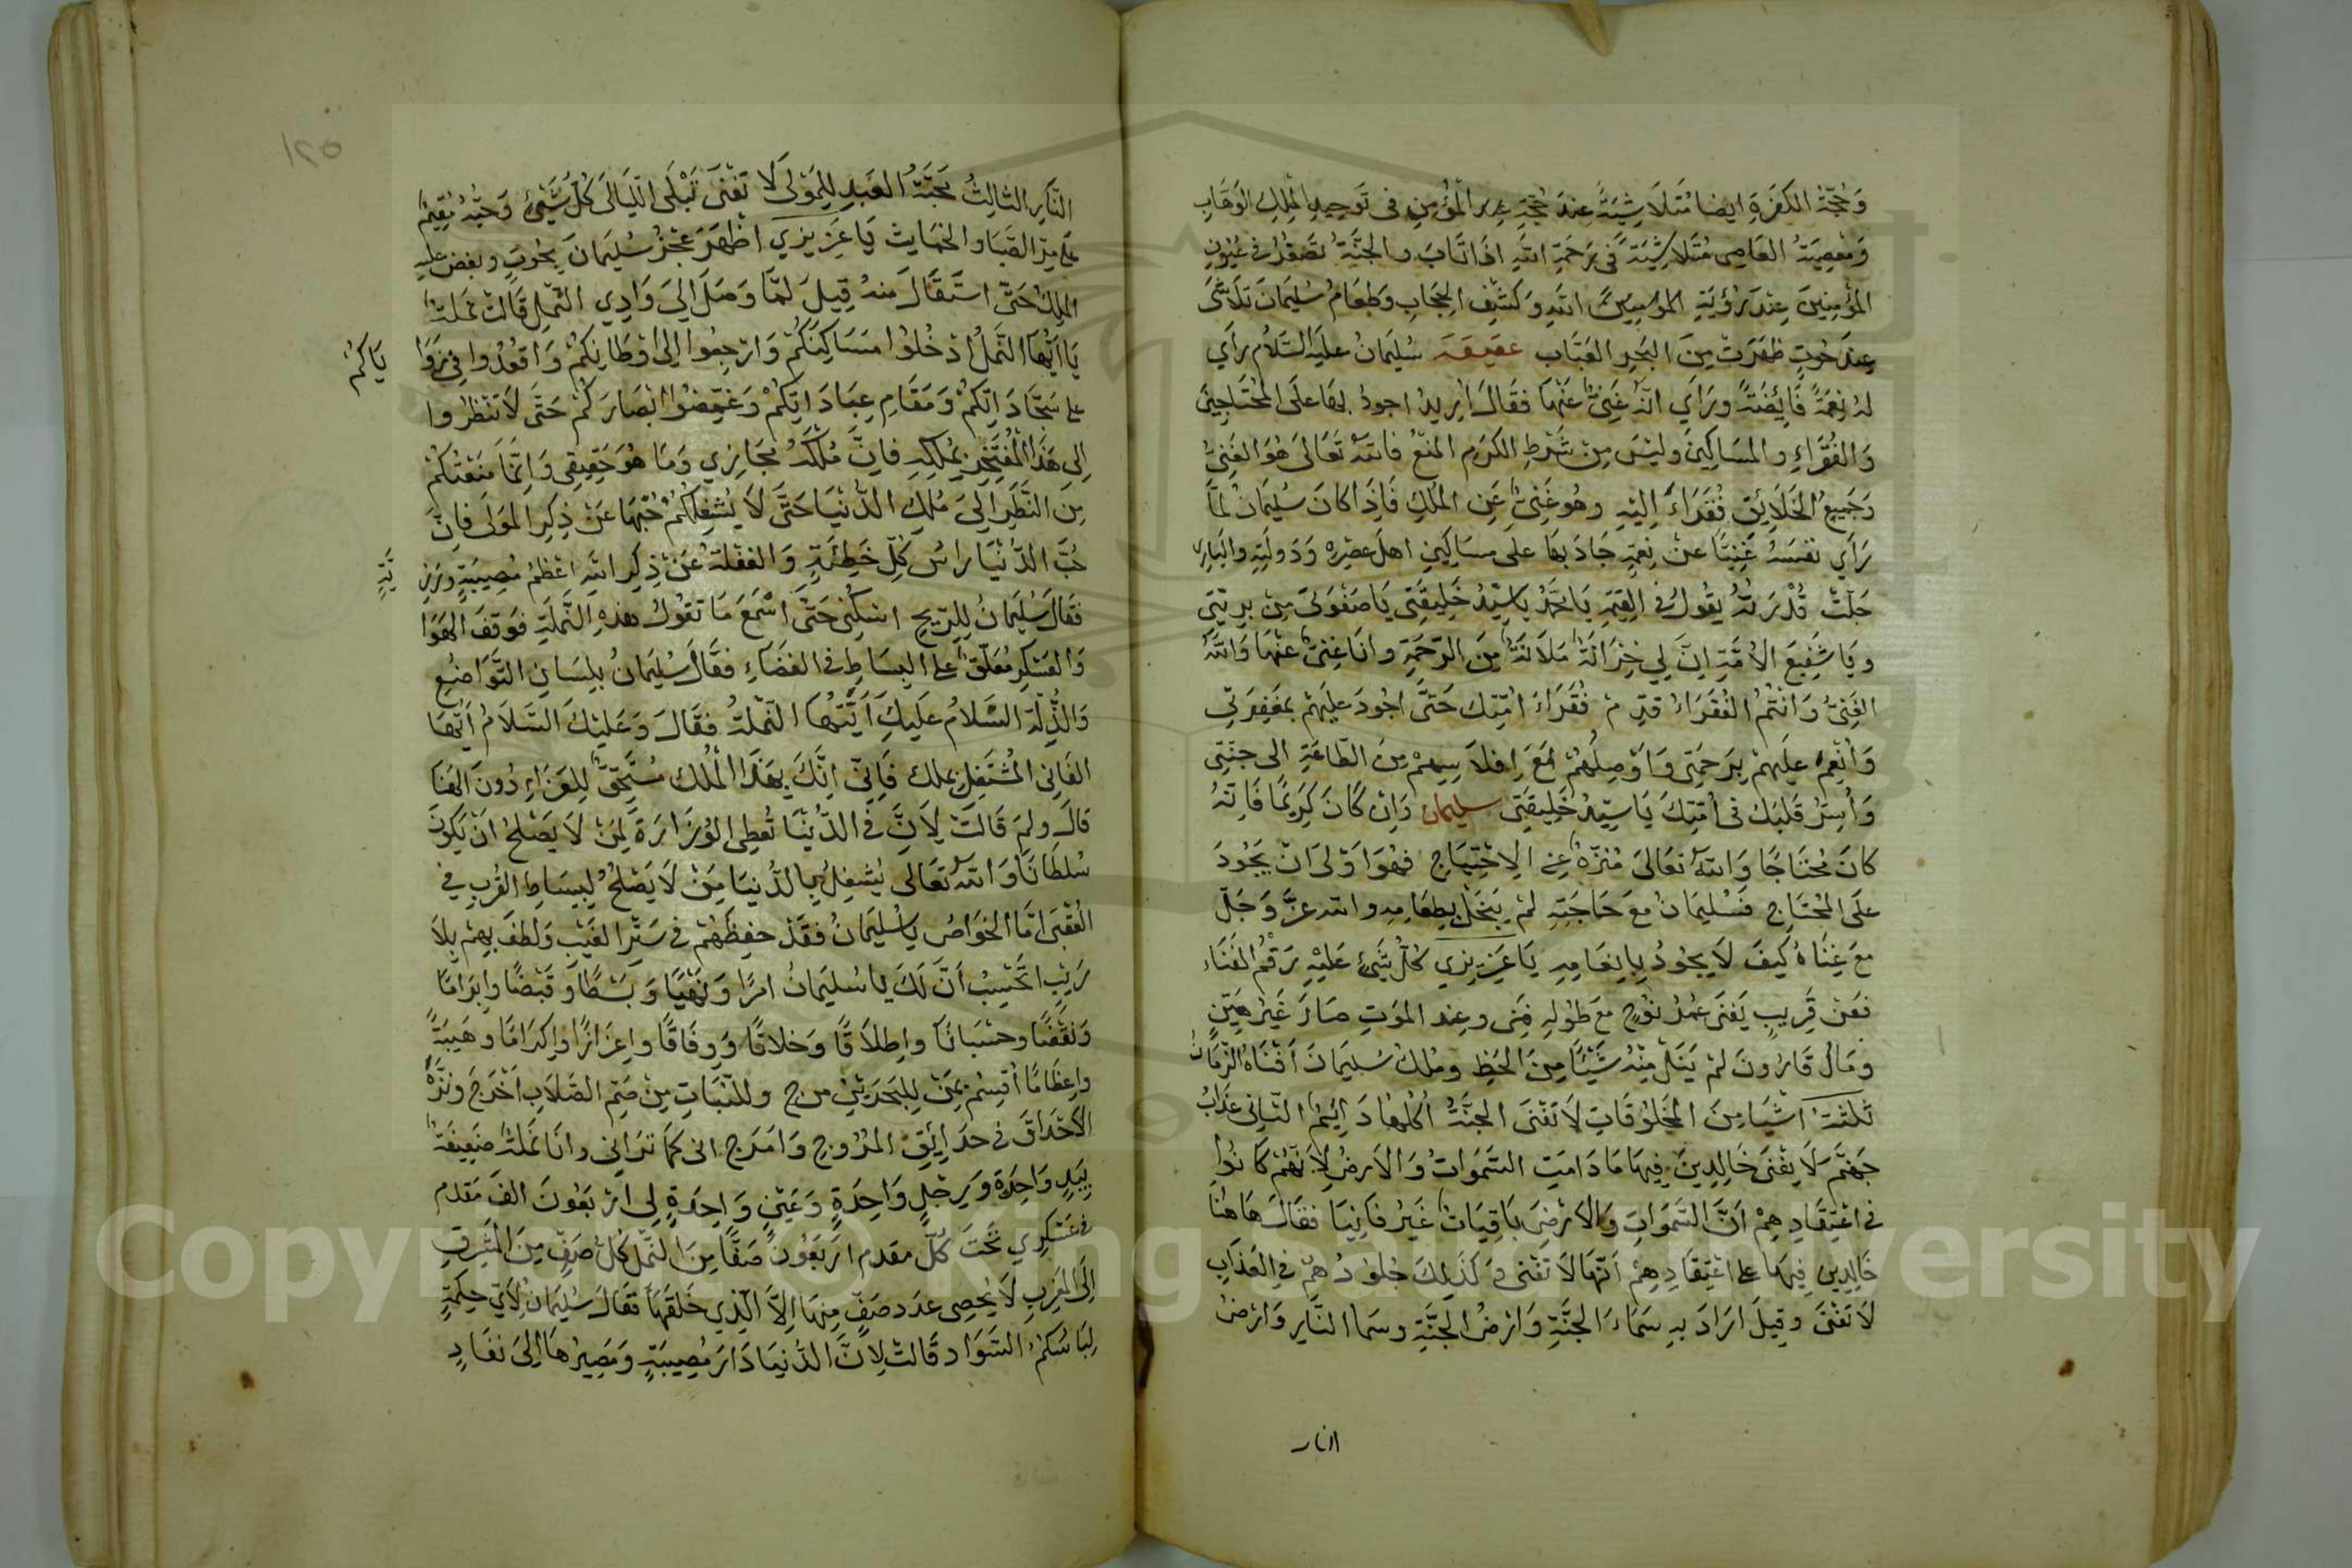 وَحُجَّةُ الكَفَرَةِ ايضا مُتَلَاشِيَةٌ عِندَ حُجَّةِ المؤمِنِ فى تَوحِيدِ المَلِكِ الوَهَّابِ
وَمَعصِيَةُ العَاصِى مُتَلاشِيَةٌ فى رَحمَةِ اللهِ اذَا تَابَ والجَنَّةُ تَصغُرُ فى عُيُونِ
المؤمِنِينَ عِندَ رُؤيَةِ اللهِ وَكَشفِ الحِجَابِ وَطَعَامُ سُلَيمَانَ تَلَاشَى
عِندَ حُوتٍ ظَهَرَت مِنَ البَحرِ العَبَّاب سُلَيمَانُ عليه السَّلَامُ رَأَي
لهُ نِعمَةً فَائِضَةً ورَأَي انَّهُ غَنِيٌّ عَنهَا فقَالَ اُرِيدُ اجودُ بِهَا عَلَى المُحتَاجِينَ
وَالفُقَرَاءِ والمسَاكِينَ وليسَ مِن شَرطِ الكَرَمِ المنعُ فالله تَعَالَى هُوَ الغَنِيُّ
وَجَمِيعُ الخَلَائِقِ فُقَرَاءُ اِليهِ وهُو غَنِيٌّ عَنِ المُلكِ فَاِذَا كَانَ سُلَيمَانُ لمَّا
رَأَي نَفسَهُ غَنِيًّا عن نِعمَةٍ جَادَ بهَا على مسَاكِينِ اهلِ عصرِه وَدَولَتِهِ والبَارِى
جَلَّت قُدرَتُهُ يَقُولُ فى القِيمَةِ يَا مُحَمَّدُ يا سَيِّدُ خَلِيقَتِى يَا صَفوَتِى مِن بريَّتِى
ويَا شَفِيعَ الاُمَّةِ اِنَّ لِي خِزَانَةً مَلآنَةً مِنَ الرَّحمَةِ وانَا غنِىٌّ عنهَا وَاللهُ
الغَنِىُّ وَانتُمُ الفُقَرَاءُ قَدِّم فُقَرَاءَ اُمَّتِك حَتَّى اجُودَ عَلَيهِم بمَغفِرَتِى
وَاُنعِمَ عَلَيهِم بِرَحمَتِى وَاُوصِلَهُم مَعَ اِفلَاسِهِم مِنَ الطَّاعَةِ الى جنَّتِى
وَاَسُرَّ قَلبَكَ فى اُمَّتِكَ يَا سَيِّدَ خَلِيقَتِى سليمان وَاِن كَانَ كَرِيمًا فَاِنَّهُ
كانَ مُحتَاجًا وَاللهُ تعَالَى مُنَزَّهٌ عنِ الِاحتِيَاجِ فهُوَ اَولَى انْ يَجُودَ
عَلَى المُحتَاجِ فَسُلَيمَانُ معَ حَاجَتِهِ لم يَبخَل بِطَعَامِهِ والله عزَّ وَجَلّ
مَعَ غِنَاهُ كَيفَ لَا يَجُودُ بِاِنعَامِهِ يَا عَزِيزِي كُلُّ شَئٍ عَلَيهِ رَقمُ الفَنَاء
فعَن قَرِيبٍ يَفنَى عُمرُ نُوحٍ مَعَ طُولِهِ فَنى وعِند المَوتِ صَارَ غَيرَ هَيِّنٍ
ومَالُ قَارُونَ لم يَنَل مِنهُ شَيئًا مِنَ الحَظِ ومُلكُ سُلَيمَانَ اَفنَاهُ الزَّمَانُ
ثَلثَةُ اشيَا مِنَ المَخلُوقَاتِ لَا تَفنَى الجَنَّةُ اُكُلُهَا دَائِمٌ الثَّانِى عَذَابُ
جَهَنَّمَ لَا يَفنَى خَالِدِينَ فِيهَا مَا دَامَتِ السَّمَوَاتُ وَالاَرضُ لِاَنَّهُم كَانُوا
فى اعتِقَادِهِم اَنَّ السَّمَوَاتِ وَالاَرضَ بَاقِيَاتٌ غَيرُ فَانِيَا فقَالَ هَاهُنَا
خَالِدِينَ فِيهَا على اعتِقَادِهِم اَنَّهَا لَا تَفنَى وَ كَذَلِكَ جُلُودُهُم فى العَذَابِ
لَا تَفنَى وقِيلَ اَرَادَ به سَمَاءَ الجَنَّةِ وَارضُ الجَنَّةِ وسمَا النَّارِ وَارضُ
النار
١٢٥
النَّارِ الثَّالِثُ مَحَبَّةُ العَبدِ لِلمَولى لَا تَفنَى تَبلَى اللَّيَالِى كُلُّ شَئٍ وَحُبُّهُ مُقِيمٌ
يَا عَزِيزِي اظهَرَ عجزُ سُلَيمَانَ بِحُوتٍ
المَلِكُ حَتَّى استَقَالَ منهُ قِيلَ لمَّا وَصَلَ اِلَى وَادِي النَّملِ قَالَت نَملَةٌ
يَا اَيُّهَا النَّملُ ادخُلُوا مسَاكِنَكُم وَارجِعُوا اِلَى اَوطَانِكُم وَاقعُدُوا فِى زوَا
يَاكُم
على سَجَّادَاتِكُم وَمَقَامِ عِبَادَاتِكُم وَغَمِّضُوا اَبصَارَكُم حَتَّى لَا تَنظُروا
اِلى هَذَا المُفتَخِرِ بمُلكِهِ فاِنَّ مُلكَهُ مَجَازِي وَمَا هُوَ حَقِيقِى وَاِنَّمَا مَنَعتُكُم
مِنَ النَّظَرِ اِلَى مُلكِ الدُّنيَا حَتَّى لَا يُشغِلَكُم حُبُّهَا عَن ذِكرِ المَولَى فاِنَّ
حُبَّ الدُّنيَا رَاسُ كُلِّ خَطِيئَةٍ وَالغَفلَةُ عَن ذِكرِ اللهِ اَعظَمُ مُصِيبَةٍ ورَزِ
يَّةٍ
فقَالَ سُلَيمَانُ للرِّيحِ اسكُنِى حَتَّى اَسمَعَ مَا تَقُولُ هذِهِ النَّملَةِ فَوَقَفَ الهَوَا
وَالعَسكَر مُعَلَّقٌ على البِسَاطِ فى الفَضَاءِ فقَالَ سُلَيمَانُ بِلِسَانِ التَّوَاضُعِ
وَالذِّلَّة السَّلَامُ عَلَيكِ اَيَّتُهَا النَّملَةُ فقَالَ وَعَلَيكَ السَّلَامُ اَيُّهَا
الفَانِى المُشتَغِلِ بملك فَانِى اِنَّكَ بِهَذَا المُلك مُستَحِقٌّ لِلعَزَاءِ دُونَ الهَنَا
قالَ ولمَ قَالَت لِاَنَّ فى الدُّنيَا تُعطِى الوُزَارَةَ لِمَن لَا يَصلُحُ اَن يَكُونَ
سُلطَانًا وَاللهُ تَعَالَى يُشغِلُ بالدُّنيَا مَن لَا يَصلُحُ لِبِسَاطِ القُربِ فى
العُقبَى اَمَّا الخَوَاصُ يا سُلَيمَانُ فقَد حفِظَهُم فى سَترِ الغَيبِ وَلَطَفَ بِهِم بِلَا
رَيبٍ اتَحسِبُ اَنَّ لَكَ يا سُلَيمَانُ امرًا وَنَهيًا وَبَسطًا وَقَبضًا وابرَامًا
وَنَقضًا وحسبَانًا واِطلَاقًا وَخلَاقًا وَوِفَاقًا واِعزَازًا واِكرَامًا وهَيبَةً
واِعظَامًا اُقسِمُ بمَن لِلبَحرَينِ مرج وللنَّبَاتِ مِن صُمِّ الصِّلَابِ اَخرَجَ ونَزَّهَ
الاَحدَاقَ فى حدَائِقِ المُرُوجِ وَامرَج انى كَمَا تَرَانِى وانَا نَملَةٌ ضَعِيفَةٌ
بِيَدٍ وَاحِدَةٍ وَرِجلٍ وَاحِدَةٍ وَعَينٍ وَاحِدَةٍ لِى اَربَعُونَ الفَ مَقدم
فى عَسكَرِي تَحتَ كُلِّ مقدم اَربَعُونَ صَفًّا مِنَ النَّملِ كُلُّ صَفٍّ مِنَ المَشرِقِ
اِلَى المَغرِبِ لَا يُحصِى عدَد صَفٍّ مِنهَا اِلَّا الَّذِي خَلَقَهَا فقَالَ سُلَيمَانُ لِاَيِّ حِكمَةٍ
لِبَاسُكُم السَّوَاد قَالَت لِاَنَّ الدُّنيَا دَارُ مُصِيبَةٍ وَمَصِيرُهَا اِلَى نفَادٍ
Copyright © King Saud University